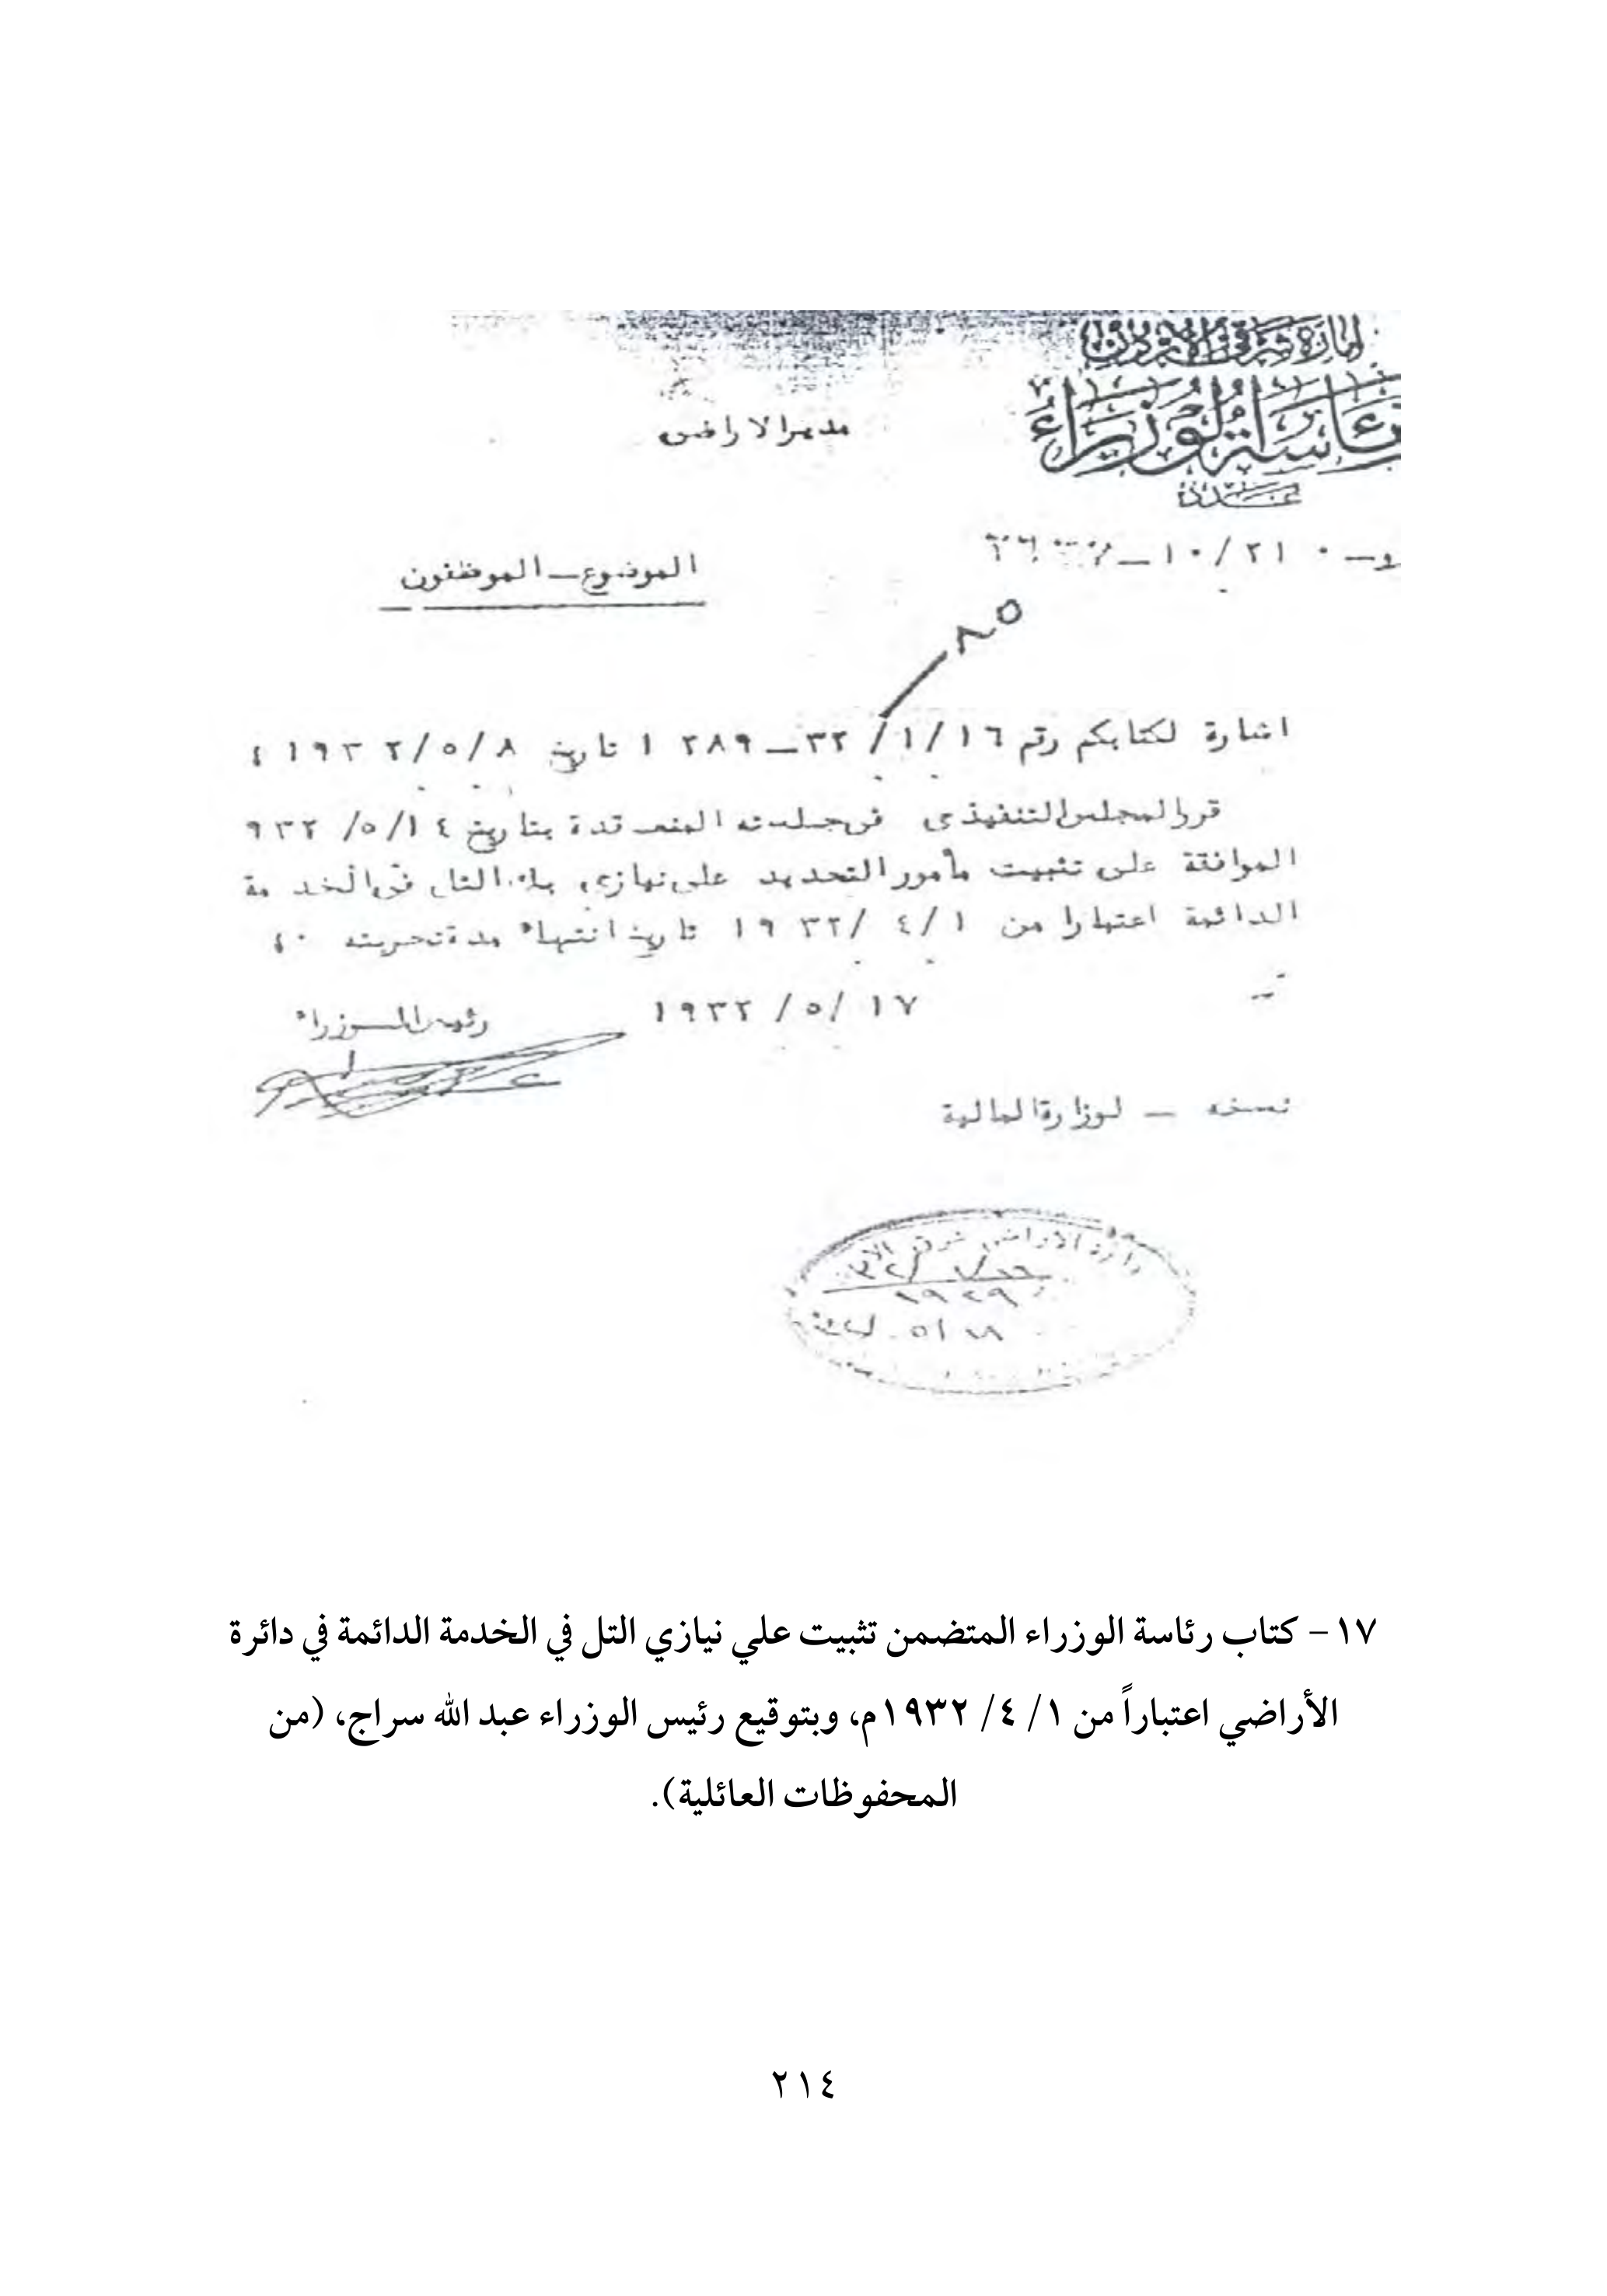 إمارة شرق الأردن
رئاسة الوزراء
عدد
مدير الاراضي
و– ٠ ٢١ /١٠–
الموضوع – الموظفون
٨٥
اشارة لكتابكم رقم ١٦ /١ /٣٢ – ١٢٨٩ تاريخ ٨ /٥ /١٩٣٢ ؛
قرر المجلس التنفيذي في جلسته المنعقدة بتاريخ ١٤ /٥ /٩٣٢
الموافقة على تثبيت مأمور التحديد علي نيازي بك التل في الخدمة
الدائمة اعتبارا من ١ /٤ /١٩٣٢ تاريخ انتهاء مدة تجربته ؛
١٧ /٥ /١٩٣٢
رئيس الوزراء
نسخه – لوزارة المالية
دائرة الاراضي شرق الا
١٦ /١ /٣٢
١٩٢٩
١٨ /٥
١٧ – كتاب رئاسة الوزراء المتضمن تثبيت علي نيازي التل في الخدمة الدائمة في دائرة
الأراضي اعتباراً من ١/ ٤/ ١٩٣٢م، وبتوقيع رئيس الوزراء عبد الله سراج، (من
المحفوظات العائلية).
٢١٤